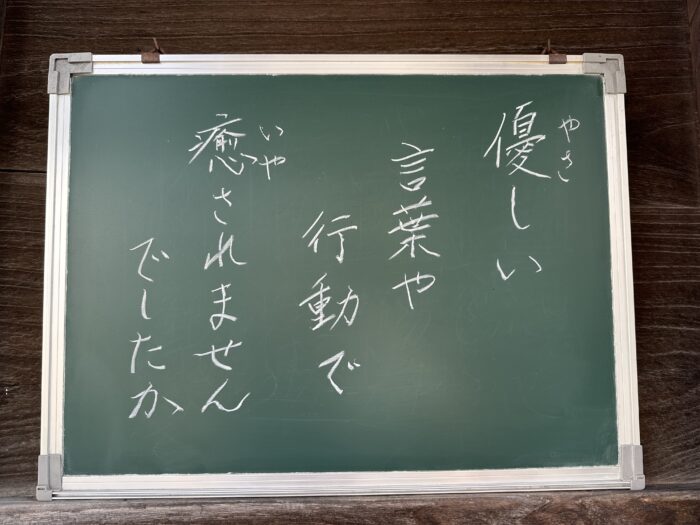 優しい
やさ
言葉や
行動で
癒されません
いや
でしたか